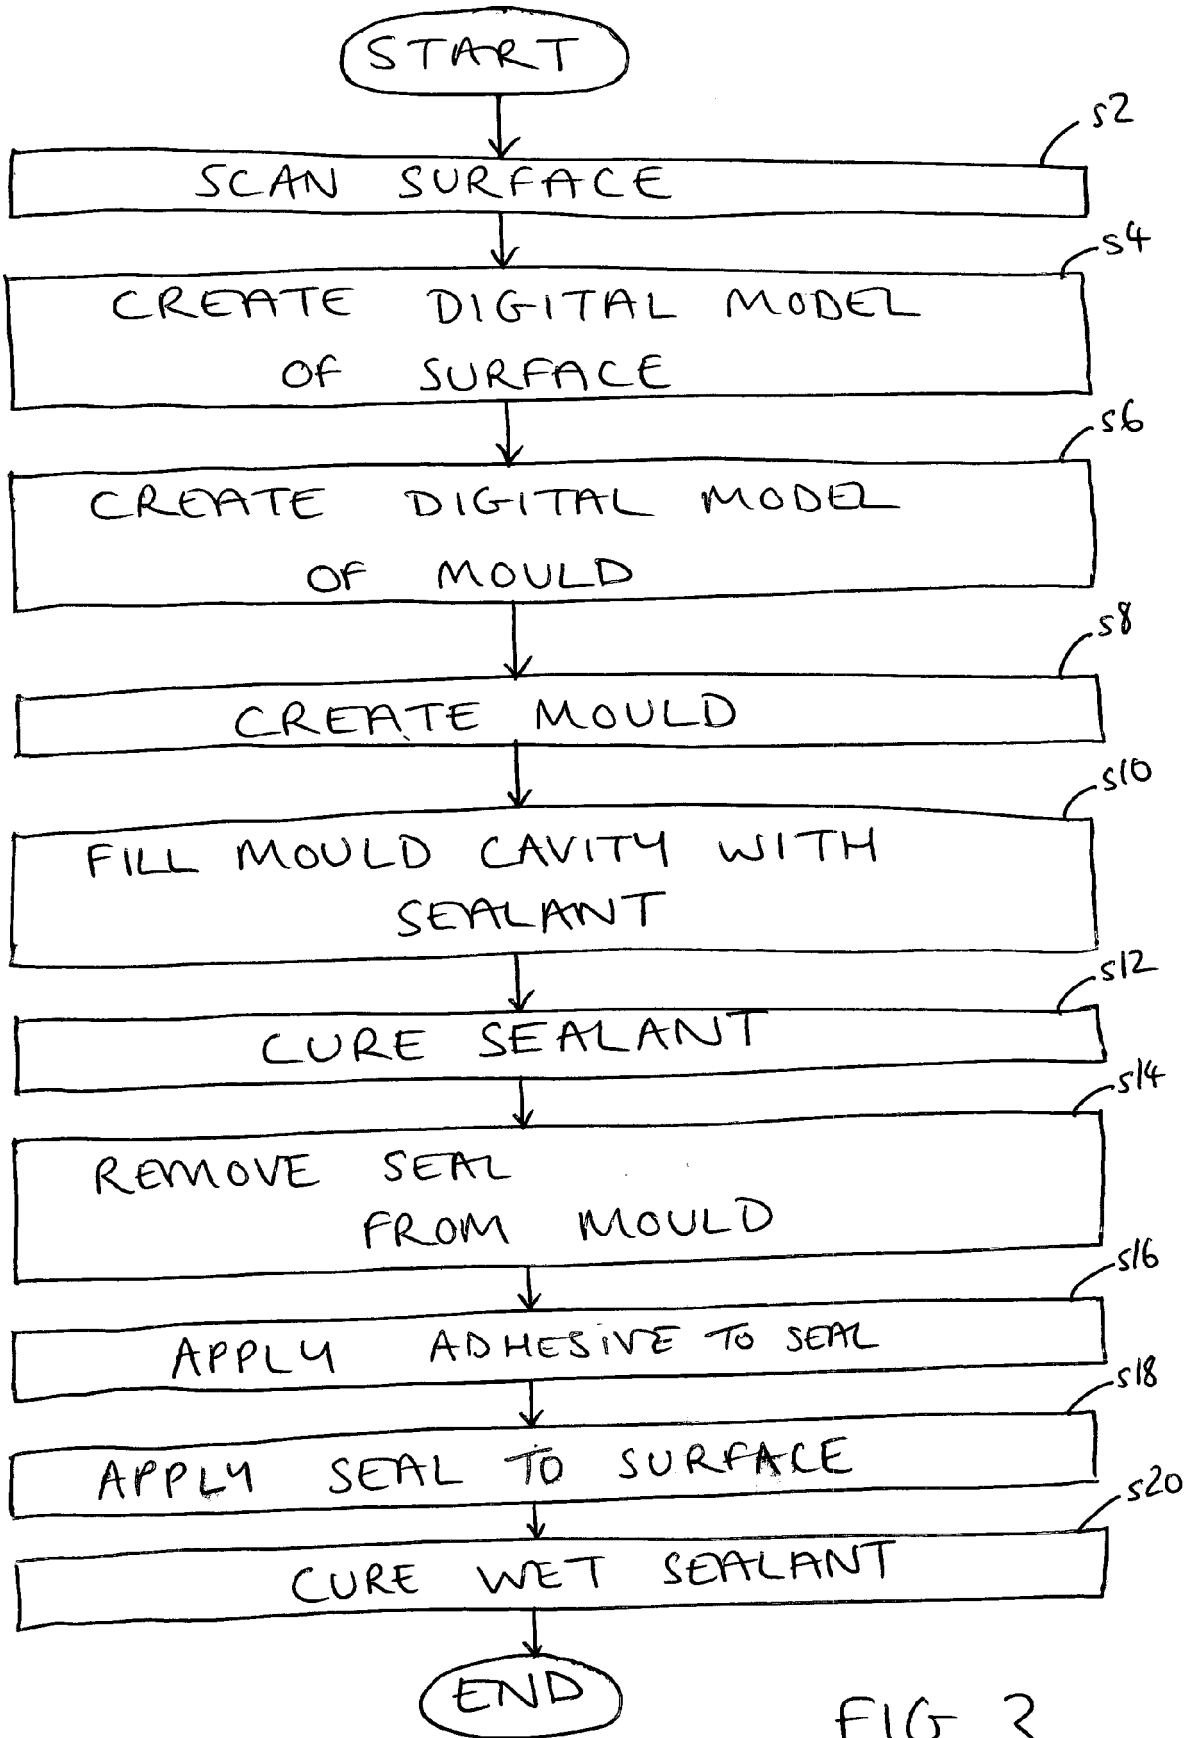 START
s2
SCAN SURFACE
s4
CREATE DIGITAL MODEL
OF SURFACE
s6
CREATE DIGITAL MODEL
OF MOULD
s8
CREATE MOULD
s10
FILL MOULD CAVITY WITH
SEALANT
s12
CURE SEALANT
s14
REMOVE SEAL
FROM MOULD
s16
APPLY ADHESIVE TO SEAL
s18
APPLY SEAL TO SURFACE
s20
CURE WET SEALANT
END
FIG